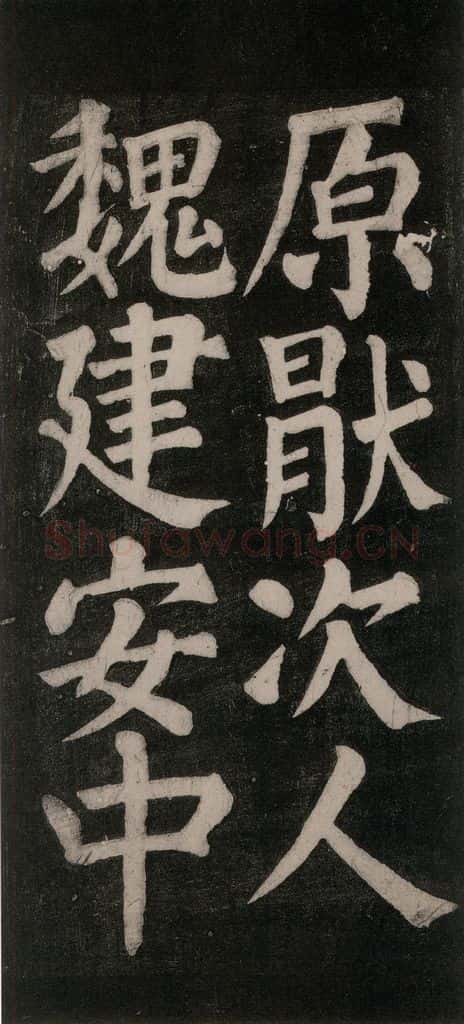 原猒次人
魏建安中
Shufawang.CN